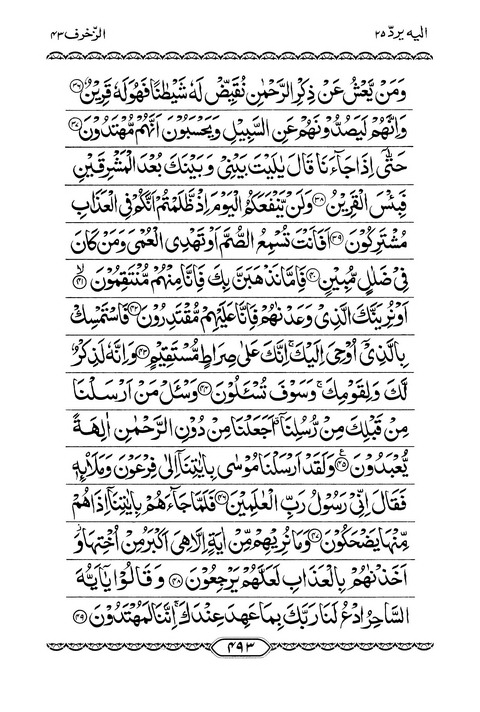 الیه یردّ ۲۵
الزخرف ۴۳
وَمَنْ يَّعْشُ عَنْ ذِكْرِ الرَّحْمٰنِ نُقَيِّضْ لَهٗ شَيْطٰنًا فَهُوَ لَهٗ قَرِيْنٌ ۳۶
وَاِنَّهُمْ لَيَصُدُّوْنَهُمْ عَنِ السَّبِيْلِ وَيَحْسَبُوْنَ اَنَّهُمْ مُّهْتَدُوْنَ ۳۷
حَتّٰى اِذَا جَآءَنَا قَالَ يٰلَيْتَ بَيْنِيْ وَ بَيْنَكَ بُعْدَ الْمَشْرِقَيْنِ
فَبِئْسَ الْقَرِيْنُ ۳۸ وَلَنْ يَّنْفَعَكُمُ الْيَوْمَ اِذْ ظَّلَمْتُمْ اَنَّكُمْ فِي الْعَذَابِ
مُشْتَرِكُوْنَ ۳۹ اَفَاَنْتَ تُسْمِعُ الصُّمَّ اَوْ تَهْدِي الْعُمْيَ وَمَنْ كَانَ
فِيْ ضَلٰلٍ مُّبِيْنٍ ۴۰ فَاِمَّا نَذْهَبَنَّ بِكَ فَاِنَّا مِنْهُمْ مُّنْتَقِمُوْنَ ۴۱
اَوْ نُرِيَنَّكَ الَّذِيْ وَعَدْنٰهُمْ فَاِنَّا عَلَيْهِمْ مُّقْتَدِرُوْنَ ۴۲ فَاسْتَمْسِكْ
بِالَّذِيْٓ اُوْحِيَ اِلَيْكَ ۚ اِنَّكَ عَلٰى صِرَاطٍ مُّسْتَقِيْمٍ ۴۳ وَاِنَّهٗ لَذِكْرٌ
لَّكَ وَلِقَوْمِكَ ۚ وَسَوْفَ تُسْـَٔلُوْنَ ۴۴ وَسْـَٔلْ مَنْ اَرْسَلْنَا
مِنْ قَبْلِكَ مِنْ رُّسُلِنَآ اَجَعَلْنَا مِنْ دُوْنِ الرَّحْمٰنِ اٰلِهَةً
يُّعْبَدُوْنَ ۴۵ وَلَقَدْ اَرْسَلْنَا مُوْسٰى بِاٰيٰتِنَآ اِلٰى فِرْعَوْنَ وَمَلَا۟ئِهٖ
فَقَالَ اِنِّيْ رَسُوْلُ رَبِّ الْعٰلَمِيْنَ ۴۶ فَلَمَّا جَآءَهُمْ بِاٰيٰتِنَآ اِذَا هُمْ
مِّنْهَا يَضْحَكُوْنَ ۴۷ وَمَا نُرِيْهِمْ مِّنْ اٰيَةٍ اِلَّا هِيَ اَكْبَرُ مِنْ اُخْتِهَا ۚ وَ
اَخَذْنٰهُمْ بِالْعَذَابِ لَعَلَّهُمْ يَرْجِعُوْنَ ۴۸ وَ قَالُوْا يٰٓاَيُّهَ
السَّاحِرُ ادْعُ لَنَا رَبَّكَ بِمَا عَهِدَ عِنْدَكَ ۚ اِنَّنَا لَمُهْتَدُوْنَ ۴۹
۴۹۳